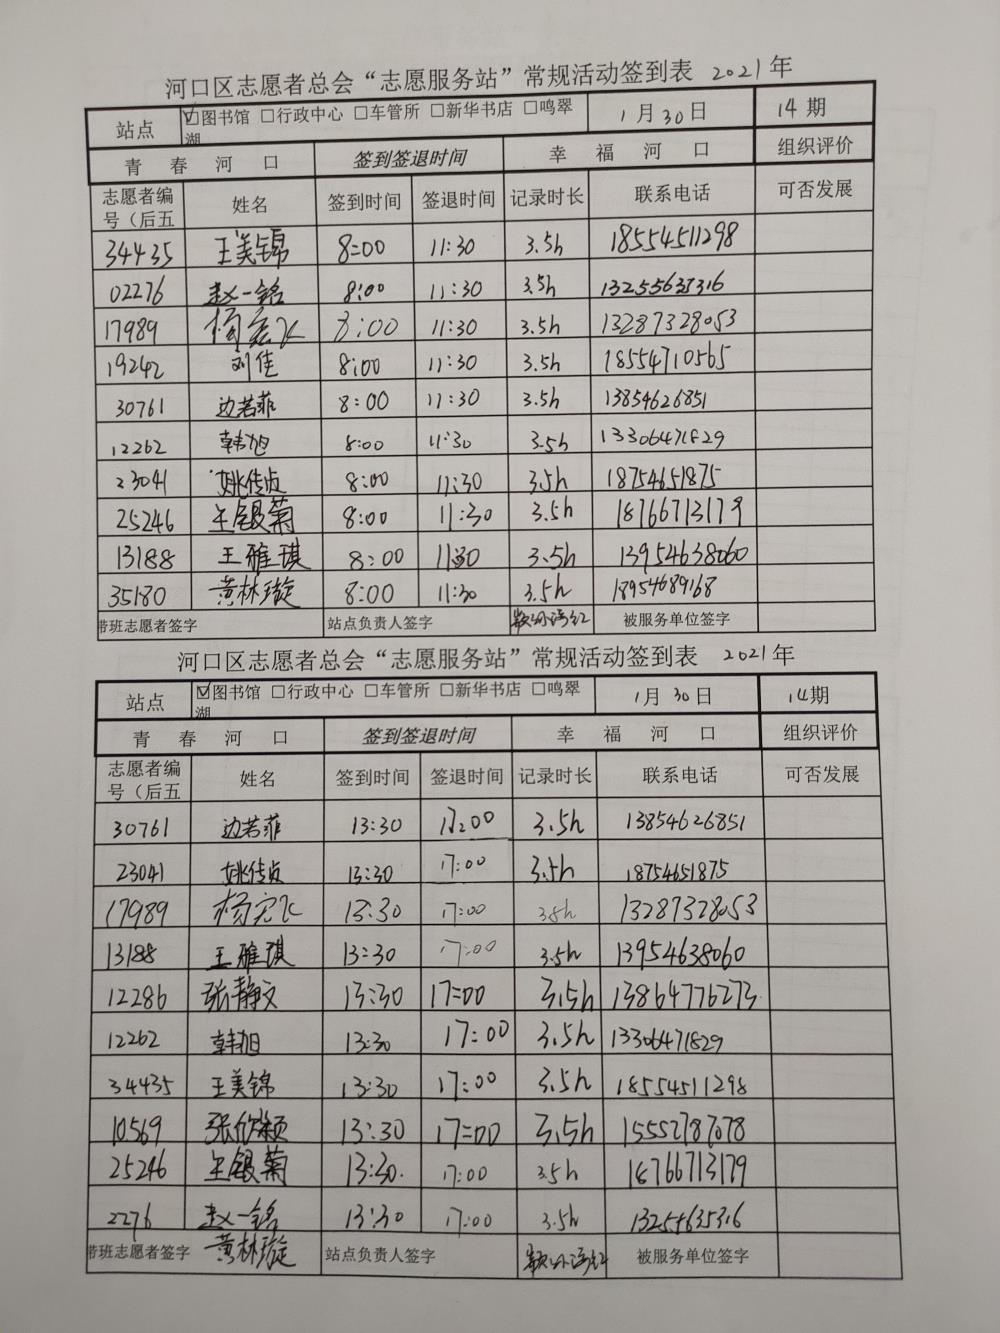 河口区志愿者总会“志愿服务站”常规活动签到表 2021年
站点 ☑图书馆 □行政中心 □车管所 □新华书店 □鸣翠湖 1月30日 14期
青春河口 签到签退时间 幸福河口 组织评价
志愿者编号（后五 姓名 签到时间 签退时间 记录时长 联系电话 可否发展
34435 王美锦 8:00 11:30 3.5h 18554511298
02276 赵一铭 8:00 11:30 3.5h 13255635316
17989 杨宪飞 8:00 11:30 3.5h 13287328053
19242 刘佳 8:00 11:30 3.5h 18554710565
30761 边若菲 8:00 11:30 3.5h 13854626851
12262 韩旭 8:00 11:30 3.5h 13306471829
23041 姚传贞 8:00 11:30 3.5h 18754651875
25246 王银菊 8:00 11:30 3.5h 18766713179
13188 王雅琪 8:00 11:30 3.5h 13954638060
35180 黄林璇 8:00 11:30 3.5h 18954689168
带班志愿者签字 站点负责人签字 被服务单位签字
河口区志愿者总会“志愿服务站”常规活动签到表 2021年
站点 ☑图书馆 □行政中心 □车管所 □新华书店 □鸣翠湖 1月30日 14期
青春河口 签到签退时间 幸福河口 组织评价
志愿者编号（后五 姓名 签到时间 签退时间 记录时长 联系电话 可否发展
30761 边若菲 13:30 17:00 3.5h 13854626851
23041 姚传贞 13:30 17:00 3.5h 18754651875
17989 杨宪飞 13:30 17:00 3.5h 13287328053
13188 王雅琪 13:30 17:00 3.5h 13954638060
12286 张静文 13:30 17:00 3.5h 13864776273
12262 韩旭 13:30 17:00 3.5h 13306471829
34435 王美锦 13:30 17:00 3.5h 18554511298
10569 张欣颖 13:30 17:00 3.5h 15552787078
25246 王银菊 13:30 17:00 3.5h 18766713179
2276 赵一铭 13:30 17:00 3.5h 13254635316
带班志愿者签字 黄林璇 站点负责人签字 被服务单位签字